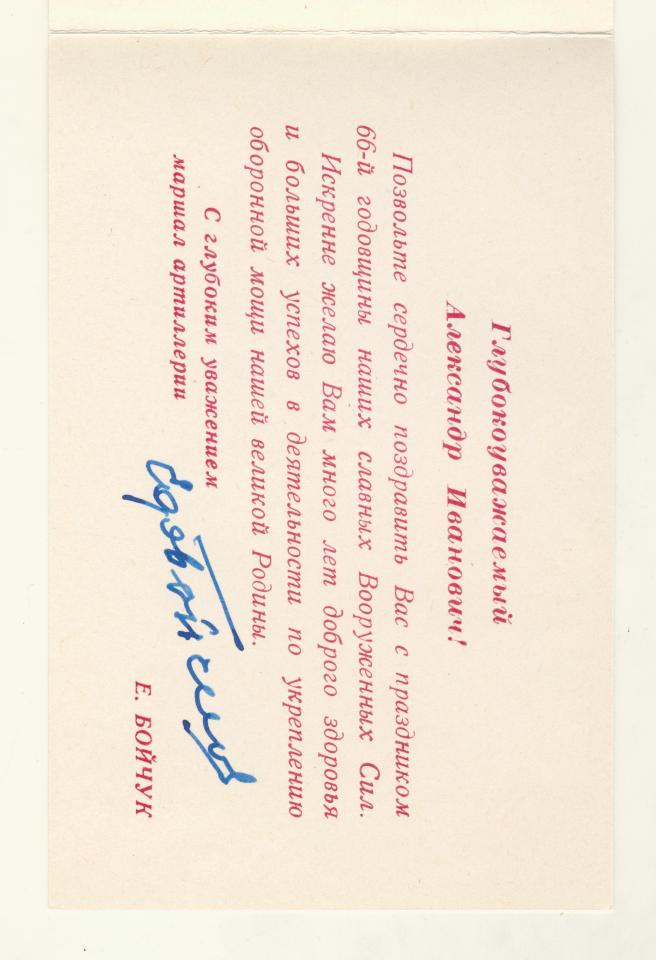 Глубокоуважаемый
Александр Иванович!
Позвольте сердечно поздравить Вас с праздником
66-й годовщины наших славных Вооруженных Сил.
Искренне желаю Вам много лет доброго здоровья
и больших успехов в деятельности по укреплению
оборонной мощи нашей великой Родины.
С глубоким уважением
маршал артиллерии
Е. БОЙЧУК